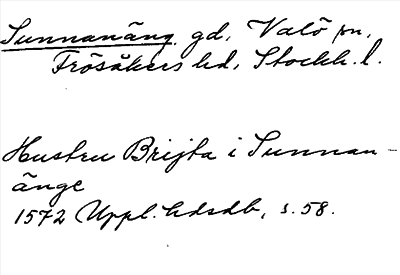 Sunnanäng. gd, Valö sn,
Frösåkers hd, Stockh. l.
Hustru Brijta i Sunnan-
änge
1572 Uppl. hdsdb, s. 58.